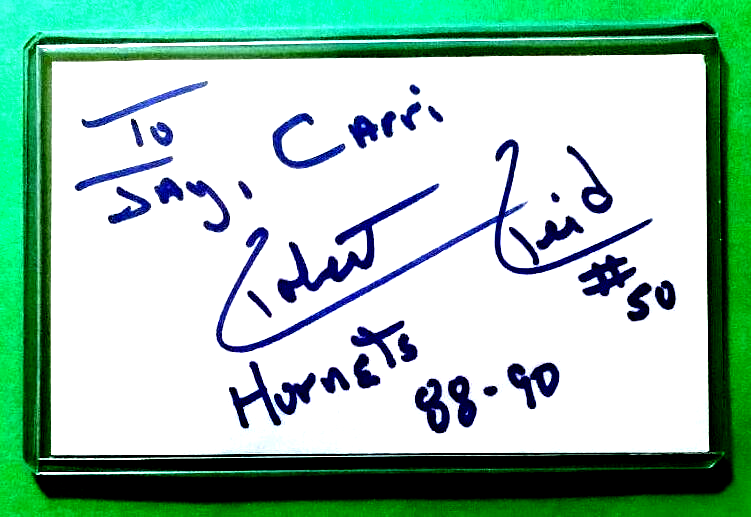 To
Jay, Carri
Robert Reid
#50
Hornets
88-90